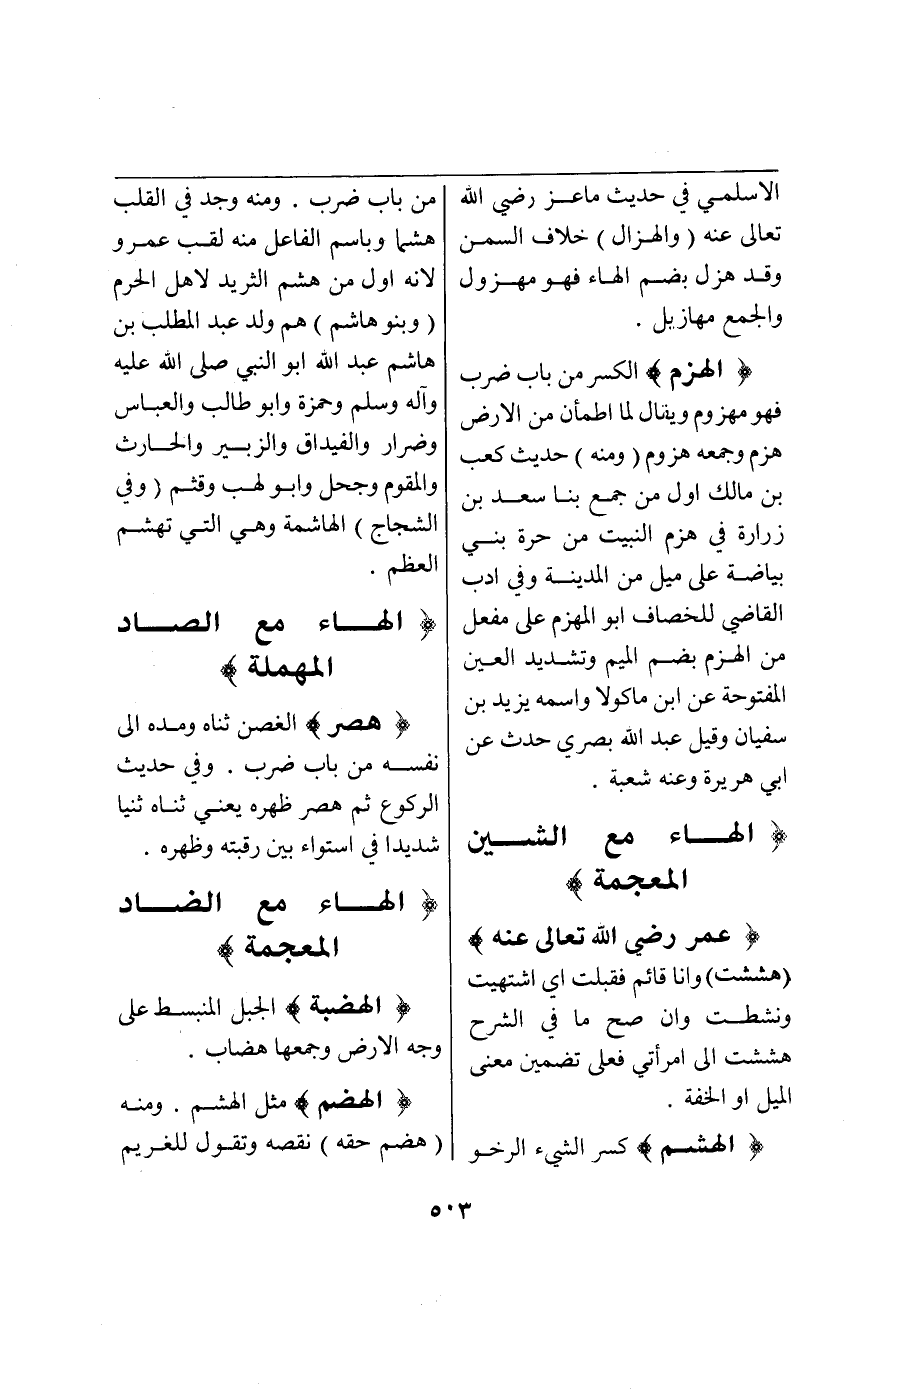 الاسلمي في حديث ماعز رضي الله
تعالى عنه ( والهزال ) خلاف السمن
وقد هزل بضم الهاء فهو مهزول
والجمع مهازيل .
﴿ الهزم ﴾ الكسر من باب ضرب
فهو مهزوم ويقال لما اطمأن من الارض
هزم وجمعه هزوم ( ومنه ) حديث كعب
بن مالك اول من جمع بنا سعد بن
زرارة في هزم النبيت من حرة بني
بياضة على ميل من المدينة وفي ادب
القاضي للخصاف ابو المهزم على مفعل
من الهزم بضم الميم وتشديد العين
المفتوحة عن ابن ماكولا واسمه يزيد بن
سفيان وقيل عبد الله بصري حدث عن
ابي هريرة وعنه شعبة .
﴿ الهاء مع الشين
المعجمة ﴾
﴿ عمر رضي الله تعالى عنه ﴾
(هششت) وانا قائم فقبلت اي اشتهيت
ونشطت وان صح ما في الشرح
هششت الى امرأتي فعلى تضمين معنى
الميل او الخفة .
﴿ الهشم ﴾ كسر الشيء الرخو
من باب ضرب . ومنه وجد في القلب
هشما وباسم الفاعل منه لقب عمرو
لانه اول من هشم الثريد لاهل الحرم
( وبنو هاشم ) هم ولد عبد المطلب بن
هاشم عبد الله ابو النبي صلى الله عليه
وآله وسلم وحمزة وابو طالب والعباس
وضرار والفيداق والزبير والحارث
والمقوم وجحل وابو لهب وقثم ( وفي
الشجاج ) الهاشمة وهي التي تهشم
العظم .
﴿ الهاء مع الصاد
المهملة ﴾
﴿ هصر ﴾ الغصن ثناه ومده الى
نفسه من باب ضرب . وفي حديث
الركوع ثم هصر ظهره يعني ثناه ثنيا
شديدا في استواء بين رقبته وظهره .
﴿ الهاء مع الضاد
المعجمة ﴾
﴿ الهضبة ﴾ الجبل المنبسط على
وجه الارض وجمعها هضاب .
﴿ الهضم ﴾ مثل الهشم . ومنه
( هضم حقه ) نقصه وتقول للغريم
٥٠٣